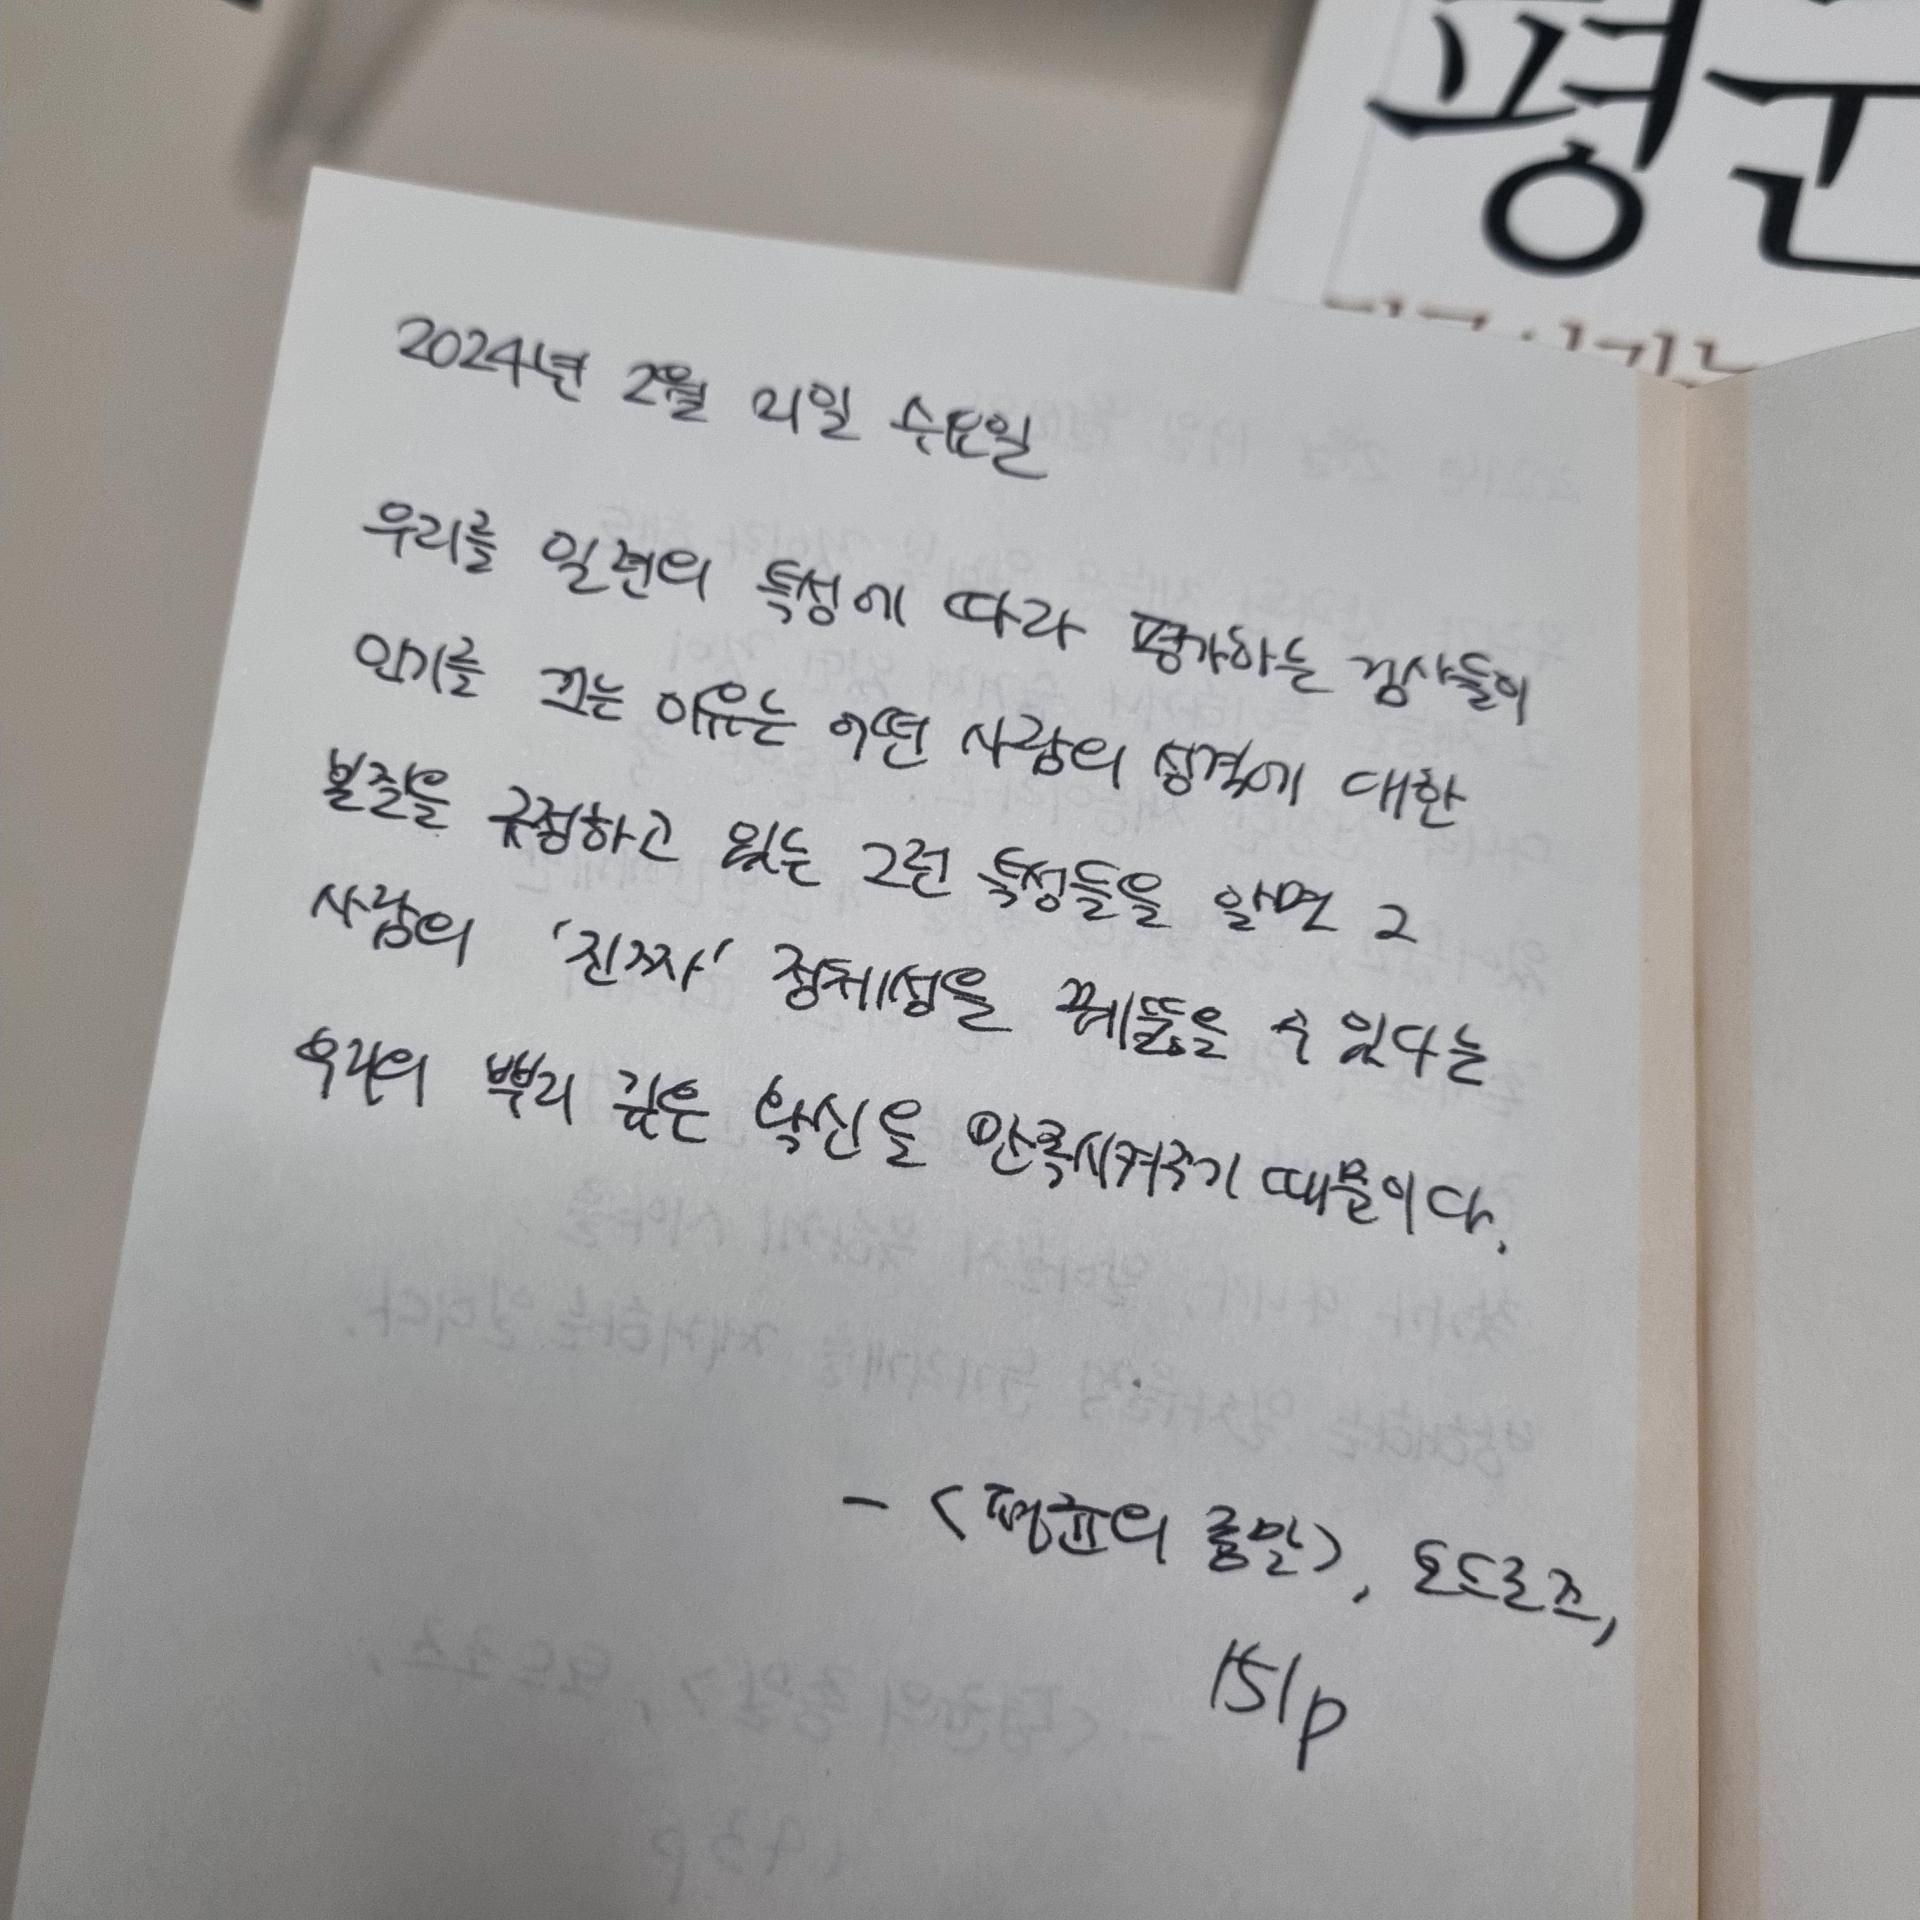 평균
2024년 2월 21일 수요일
우리를 일련의 특성에 따라 평가하는 검사들이
인기를 끄는 이유는 어떤 사람의 성격에 대한
본질을 규정하고 있는 그런 특성들을 알면 그
사람의 '진짜' 정체성을 꿰뚫을 수 있다는
우리의 뿌리 깊은 확신을 만족시켜주기 때문이다.
- <평균의 종말>, 토드로즈,
151p